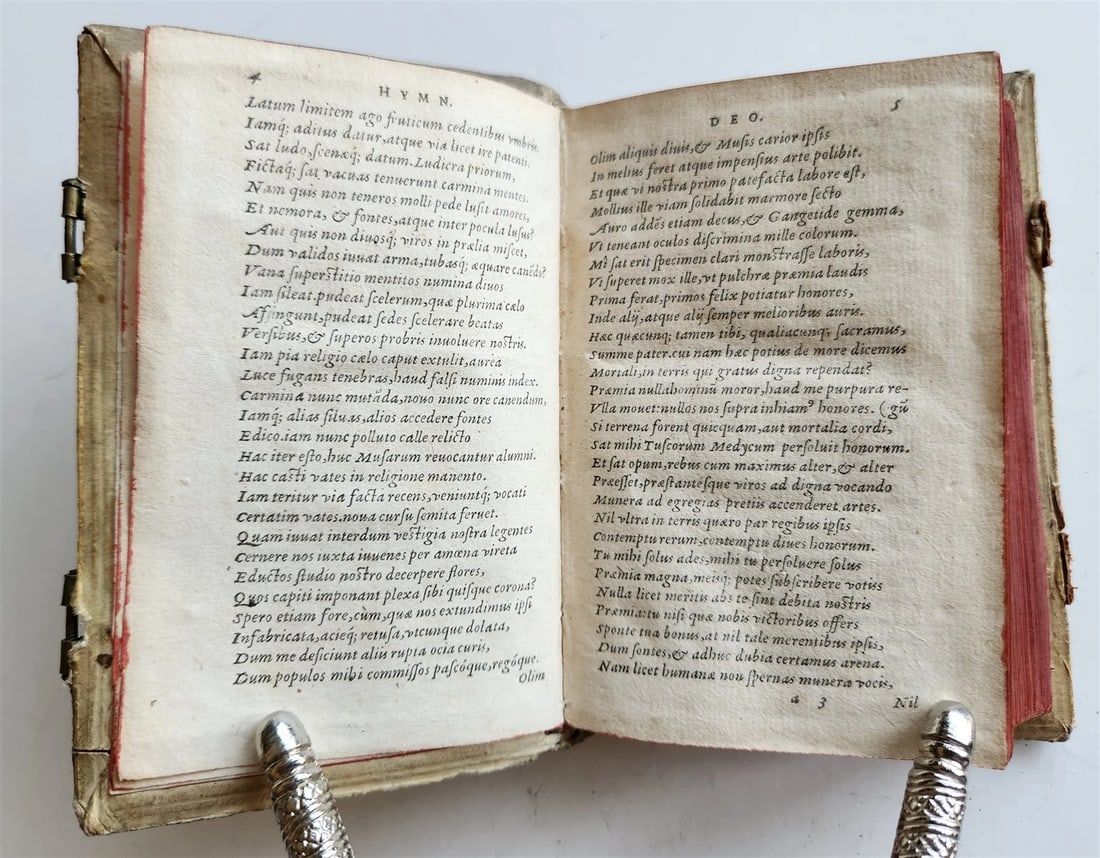 4
HYMN.
Latum limitem ago fruticum cedentibus vmbris.
Iamq́; aditus datur, atque via licet ire patenti.
Sat ludo, scenæq́; datum. Ludicra priorum,
Fictaq́; sat vacuas tenuerunt carmina mentes.
Nam quis non teneros molli pede lusit amores,
Et nemora, & fontes, atque inter pocula lusus?
Aut quis non diuosq́; viros in prælia miscet,
Dum validos iuuat arma, tubasq́; æquare canēdo?
Vana superstitio mentitos numina diuos
Iam sileat. pudeat scelerum, quæ plurima cælo
Affingunt, pudeat sedes scelerare beatas
Versibus, & superos probris inuoluere nostris.
Iam pia religio cælo caput extulit, aurea
Luce fugans tenebras, haud falsi numinis index.
Carmina nunc mutāda, nouo nunc ore canendum,
Iamq́; alias siluas, alios accedere fontes
Edico. iam nunc polluto calle relicto
Hac iter esto, huc Musarum reuocantur alumni.
Hac casti vates in religione manento.
Iam teritur via facta recens, veniuntq́; vocati
Certatim vates. noua cursu semita feruet.
Quam iuuat interdum vestigia nostra legentes
Cernere nos iuxta iuuenes per amœna vireta
Eductos studio nostro decerpere flores,
Quos capiti imponant plexa sibi quisque corona?
Spero etiam fore, cùm, quæ nos extundimus ipsi
Infabricata, acieq́; retusa, vtcunque dolata,
Dum me deficiunt aliis rupta ocia curis,
Dum populos mihi commissos pascóque, regóque.
Olim
5
DEO.
Olim aliquis diuis, & Musis carior ipsis
In melius feret atque impensius arte polibit.
Et quæ vi nostra primo patefacta labore est,
Mollius ille viam solidabit marmore secto
Auro addēs etiam decus, & Gangetide gemma,
Vt teneant oculos discrimina mille colorum.
Mì sat erit specimen clari monstrasse laboris,
Vt superet mox ille, vt pulchræ præmia laudis
Prima ferat, primos felix potiatur honores,
Inde alij, atque alij semper melioribus auris.
Hæc quæcunq; tamen tibi, qualiacunq; sacramus,
Summe pater. cui nam hæc potius de more dicemus
Mortali, in terris qui gratus digna rependat?
Præmia nulla hominū moror, haud me purpura re-
Vlla mouet: nullos nos supra inhiamꝰ honores. (gū
Si terrena forent quicquam, aut mortalia cordi,
Sat mihi Tuscorum Medycum persoluit honorum.
Et sat opum, rebus cum maximus alter, & alter
Præesset, præstantesque viros ad digna vocando
Munera ad egregias pretiis accenderet artes.
Nil vltra in terris quæro par regibus ipsis
Contemptu rerum, contemptu diues honorum.
Tu mihi solus ades, mihi tu persoluere solus
Præmia magna, meisq́; potes subscribere votis
Nulla licet meritis abs te sint debita nostris
Præmia: tu nisi quæ nobis victoribus offers
Sponte tua bonus, at nil tale merentibus ipsis,
Dum sontes, & adhuc dubia certamus arena.
Nam licet humanæ non spernas munera vocis,
a 3
Nil